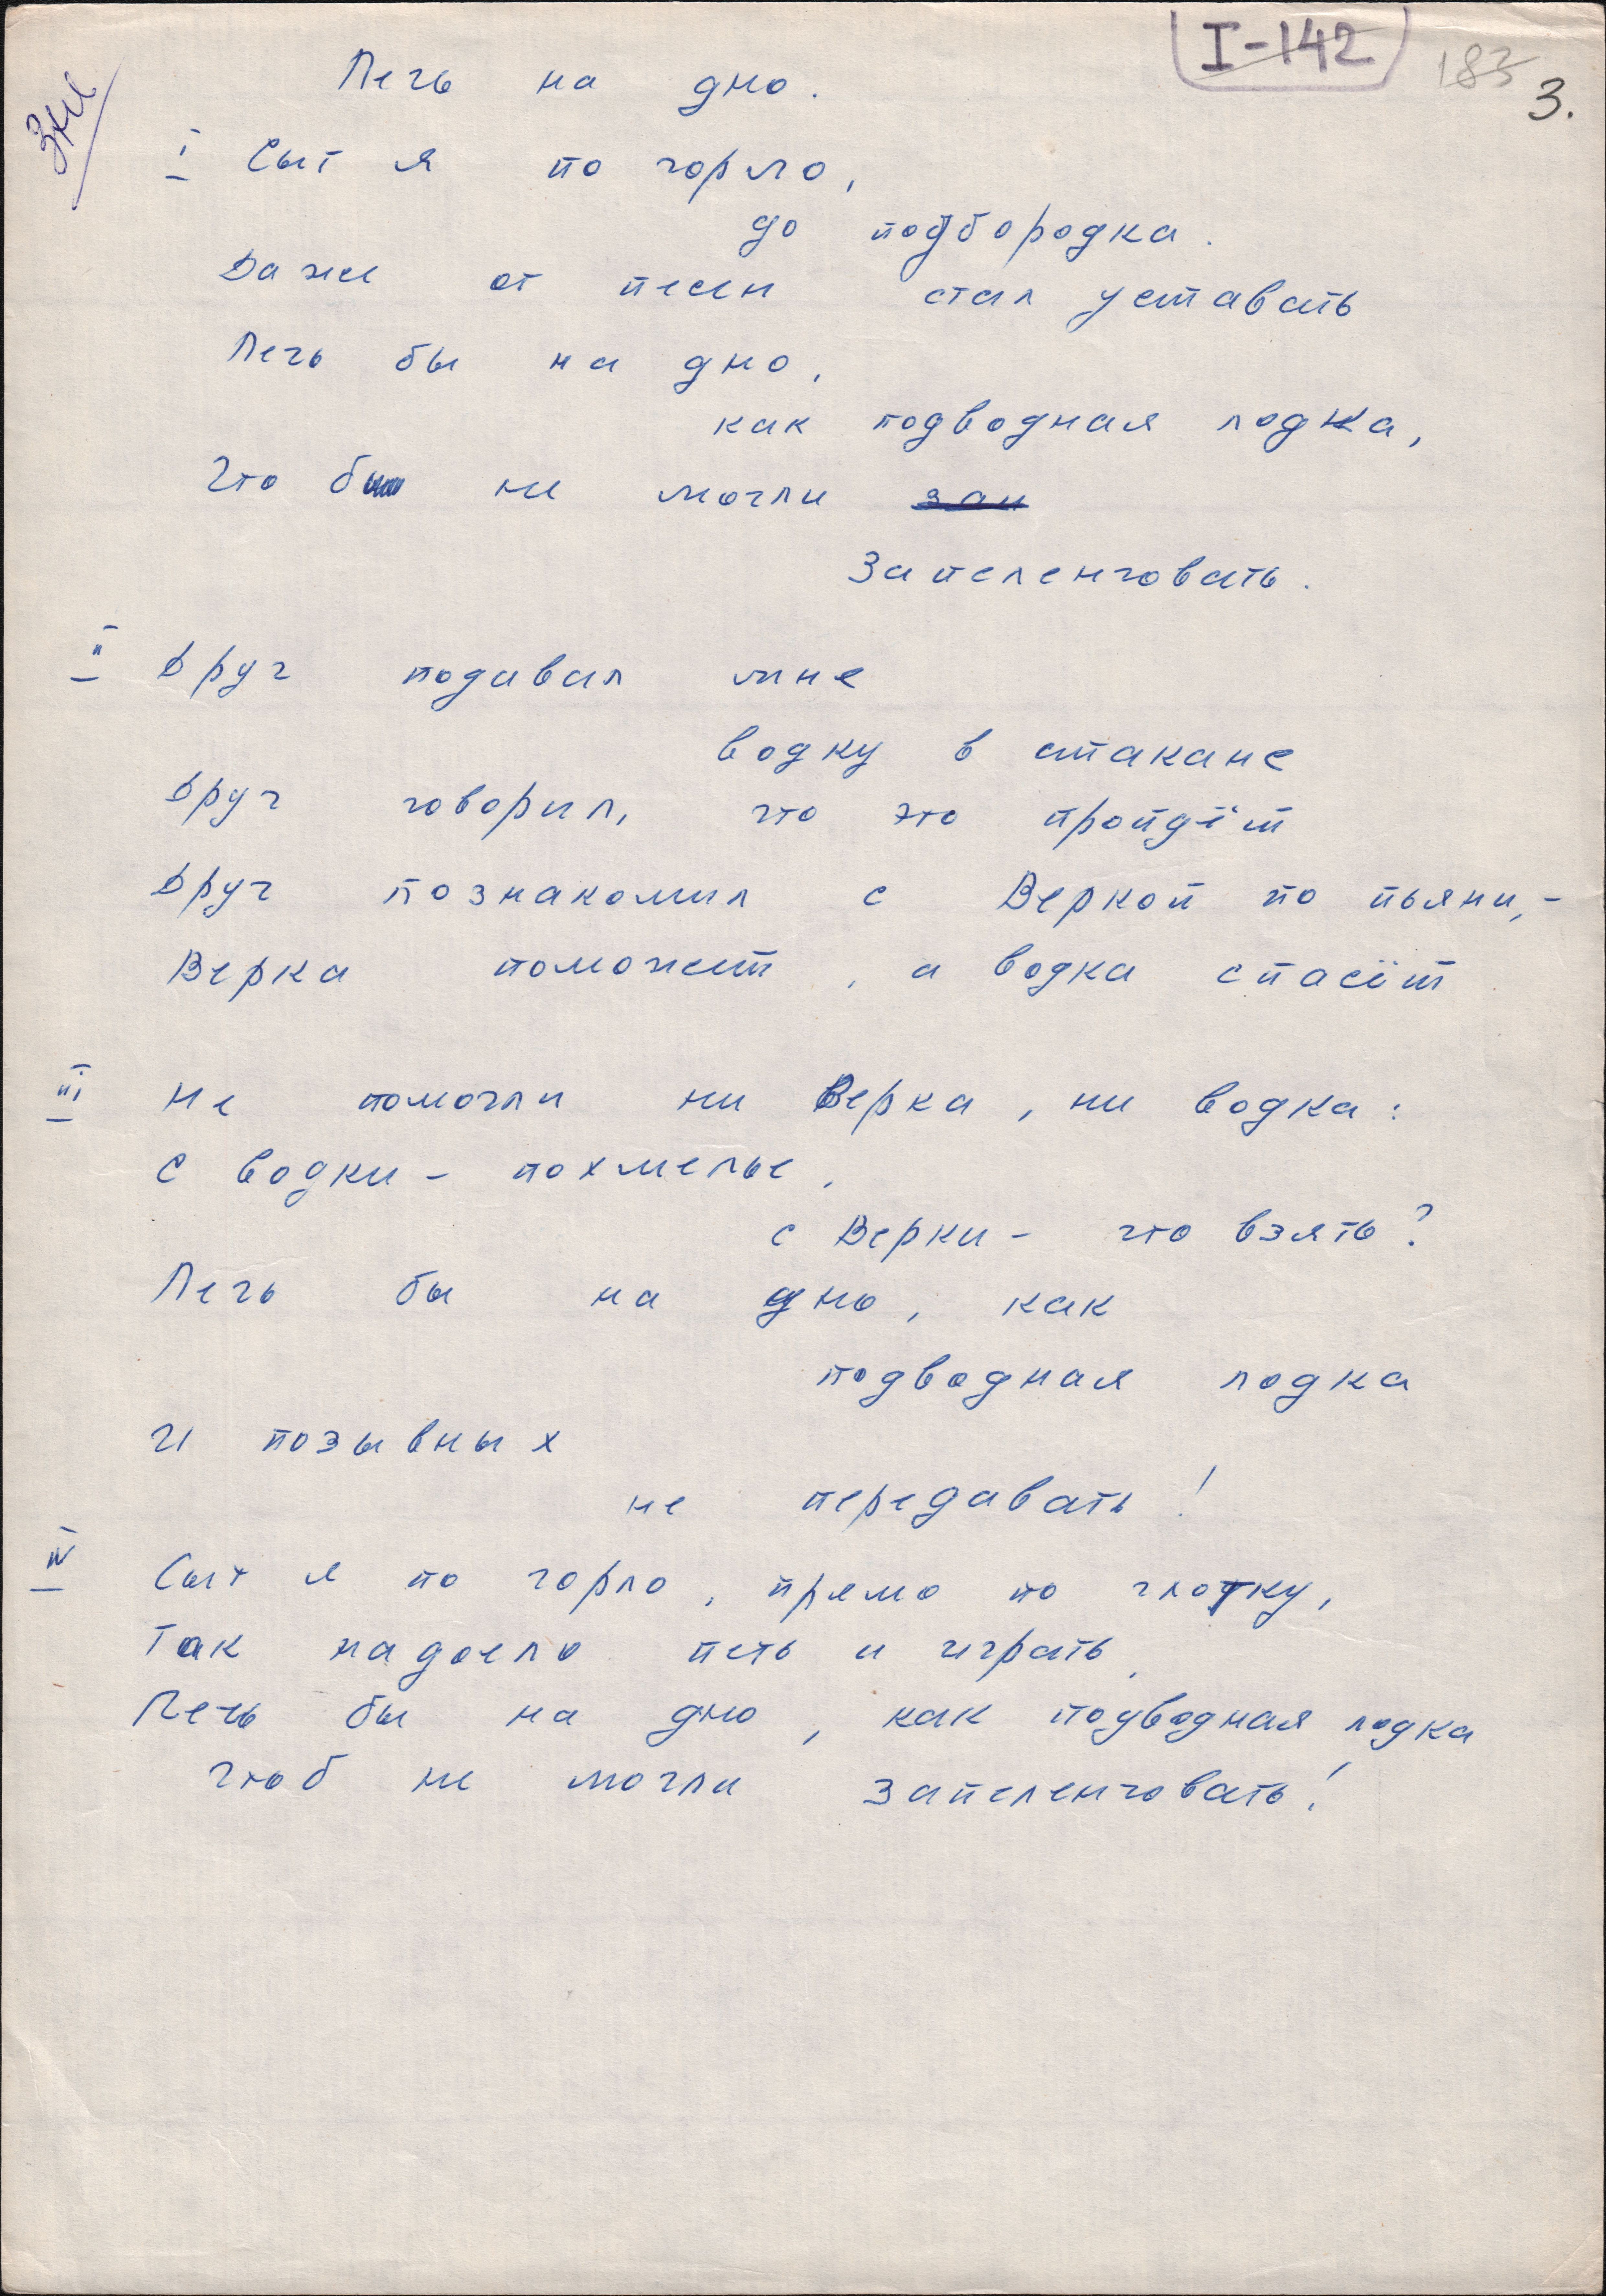 I-142
183
3.
Лечь на дно.
I Сыт я по горло,
до подбородка.
Даже от песен стал уставать
Лечь бы на дно,
как подводная лодка,
Что б не могли зап
Запеленговать.
II Друг подавал мне
водку в стакане
Друг говорил, что это пройдёт
Друг познакомил с Веркой по пьяни,-
Верка поможет, а водка спасёт
III Не помогли ни Верка, ни водка:
С водки - похмелье,
с Верки - что взять?
Лечь бы на дно, как
подводная лодка
И позывных
не передавать!
IV Сыт я по горло, прямо по глотку,
Так надоело петь и играть,
Лечь бы на дно, как подводная лодка
Чтоб не могли запеленговать!